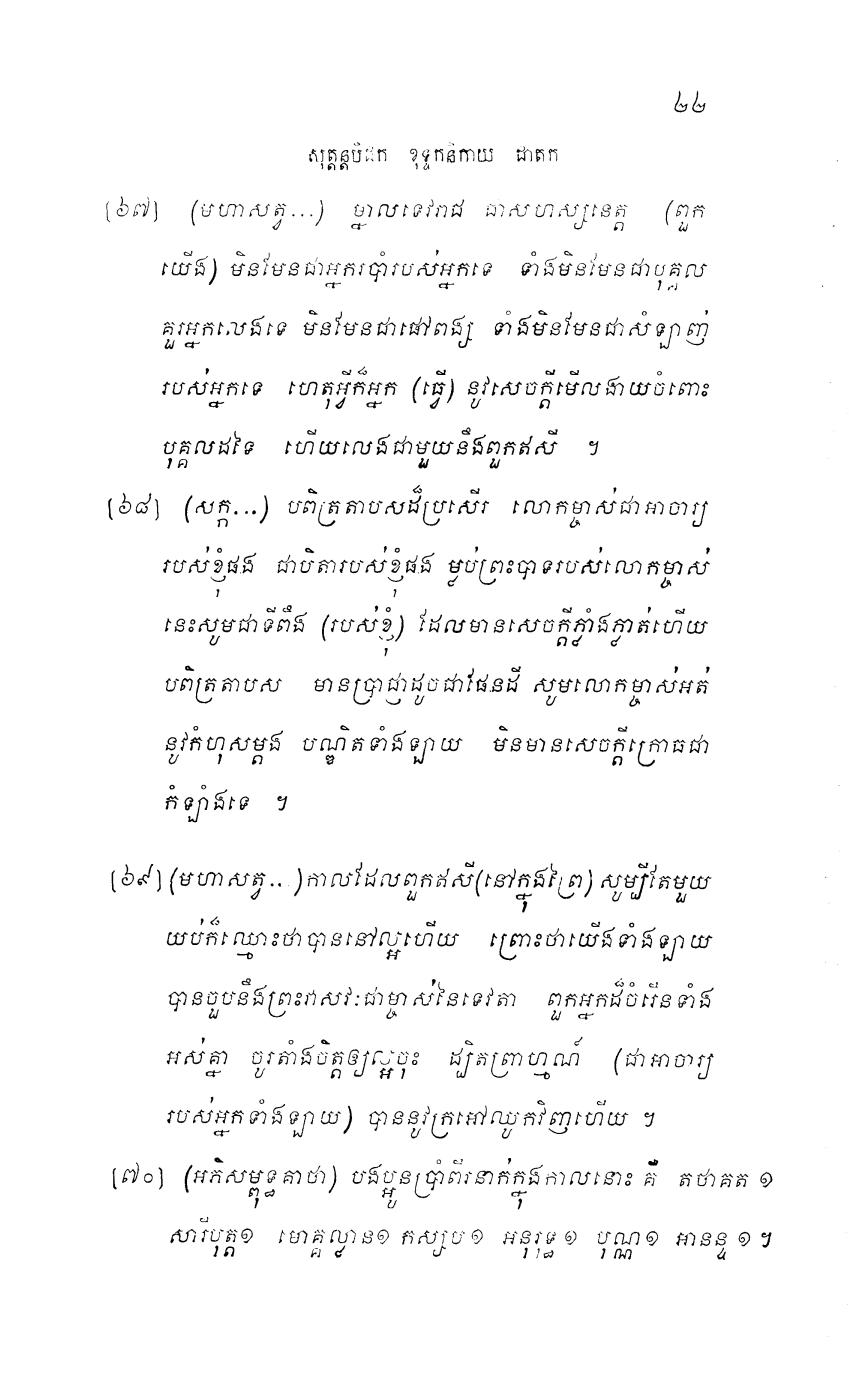 ២២
សុត្តន្តបិដក ខុទ្ទកនិកាយ ជាតក
[៦៧] (មហាសត្វ...) ម្នាលទេវរាជ ជាសហស្សនេត្ត (ពួក
យើង) មិនមែនជាអ្នករបាំរបស់អ្នកទេ ទាំងមិនមែនជាបុគ្គល
គួរអ្នកលេងទេ មិនមែនជាផៅពង្ស ទាំងមិនមែនជាសំឡាញ់
របស់អ្នកទេ ហេតុអ្វីក៏អ្នក (ធ្វើ) នូវសេចក្តីមើលងាយចំពោះ
បុគ្គលដទៃ ហើយលេងជាមួយនឹងពួកឥសី ។
[៦៨] (សក្ក...) បពិត្រតាបសដ៏ប្រសើរ លោកម្ចាស់ជាអាចារ្យ
របស់ខ្ញុំផង ជាបិតារបស់ខ្ញុំផង ម្លប់ព្រះបាទរបស់លោកម្ចាស់
នេះសូមជាទីពឹង (របស់ខ្ញុំ) ដែលមានសេចក្តីភ្លាំងភ្លាត់ហើយ
បពិត្រតាបស មានប្រាជ្ញាដូចជាផែនដី សូមលោកម្ចាស់អត់
នូវកំហុសម្តង បណ្ឌិតទាំងឡាយ មិនមានសេចក្តីក្រោធជា
កំឡាំងទេ ។
[៦៩] (មហាសត្វ...) កាលដែលពួកឥសី (នៅក្នុងព្រៃ) សូម្បីតែមួយ
យប់ក៏ឈ្មោះថាបាននៅល្អហើយ ព្រោះថាយើងទាំងឡាយ
បានចួបនឹងព្រះវាសវៈជាម្ចាស់នៃទេវតា ពួកអ្នកដ៏ចំរើនទាំង
អស់គ្នា ចូរតាំងចិត្តឲ្យល្អចុះ ដ្បិតព្រាហ្មណ៍ (ជាអាចារ្យ
របស់អ្នកទាំងឡាយ) បាននូវក្រអៅឈូកវិញហើយ ។
[៧០] (អភិសម្ពុទ្ធគាថា) បងប្អូនប្រាំពីរនាក់ក្នុងកាលនោះ គឺ តថាគត ១
សារីបុត្ត១ មោគ្គល្លាន១ កស្សប១ អនុរុទ្ធ១ បុណ្ណ១ អានន្ទ១ ។